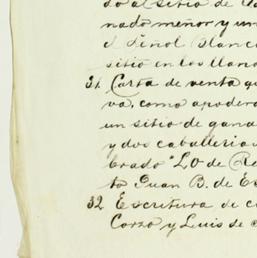 do al sitio de
nado menor y un
el Peñol Blanco
sitio en los llano
31 Carta de venta q
va, como apodera
un sitio de gana
y dos caballerias
brado "Lo de Re
to Juan B. de E
32 Escritura de c
Corzo y Luis de